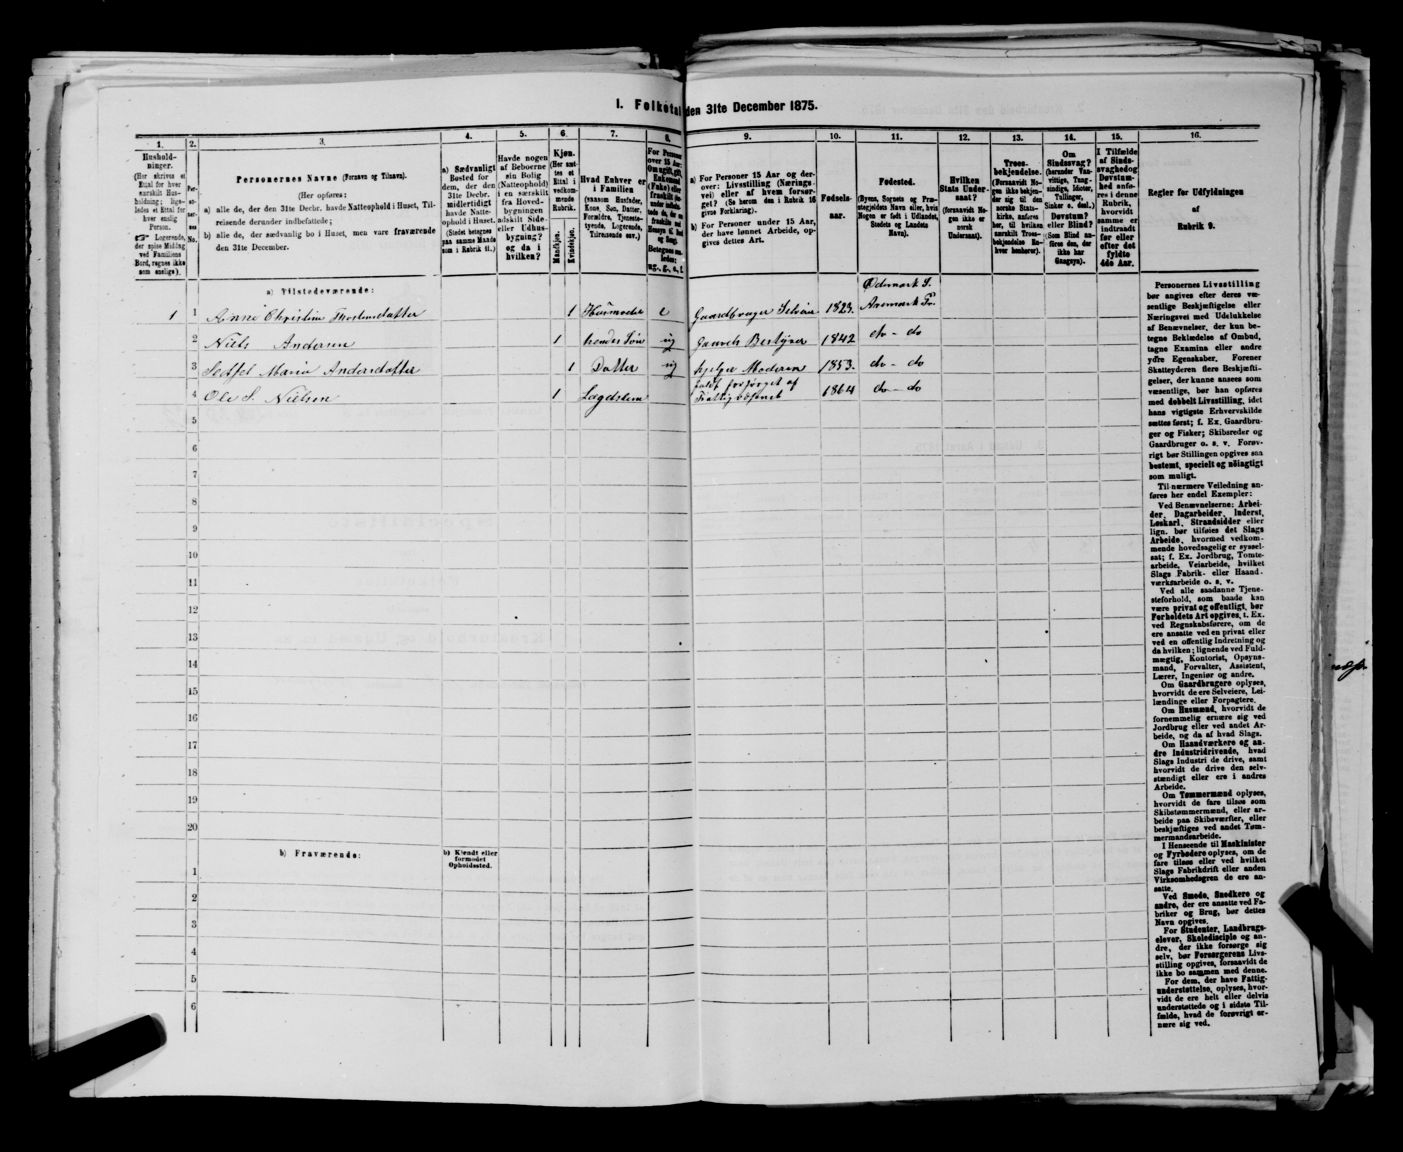 I. Folketal den 31te December 1875.
1.
2.
3.
4.
5.
6.
7.
8.
9.
10.
11.
12.
13.
14.
15.
16.
Hushold-
ninger.
(Her skrives et
Ettal for hver
særskilt Hus-
holdning; lige-
ledes et Ettal for
hver enslig
Person.
☞ Logerende,
der spise Middag
ved Familiens
Bord, regnes ikke
som enslige).
Personernes Navne (Fornavn og Tilnavn).
(Her opføres:
a) alle de, der den 31te Decbr. havde Natteophold i Huset, Til-
reisende derunder indbefattede;
b) alle de, der sædvanlig bo i Huset, men vare fraværende
den 31te December.
a) Sædvanligt
Bosted for
dem, der den
31te Decbr.
midlertidigt
havde Natte-
ophold i Huset.
(Stedet betegnes
paa samme Maade
som i Rubrik 11.)
Havde nogen
af Beboerne
sin Bolig
(Natteophold)
i en særskilt
fra Hoved-
bygningen
adskilt Side-
eller Udhus-
bygning?
og da i
hvilken?
Kjøn.
(Her sæt-
tes et
Ettal i
vedkom-
mende
Rubrik.
Mandkjøn.
Kvindekjøn.
Hvad Enhver er
i Familien
(saasom Husfader,
Kone, Søn, Datter,
Forældre, Tjeneste-
tyende, Logerende,
Tilreisende osv.)
For Personer
over 15 Aar:
Om ugift, gift,
Enkemand
(Enke) eller
fraskilt
a) For Personer 15 Aar og der-
over: Livsstilling (Nærings-
vei) eller af hvem forsør-
get? (Se herom den i Rubrik 16
givne Forklaring).
b) For Personer under 15 Aar,
der have lønnet Arbeide, op-
gives dettes Art.
Fødsels-
aar.
Fødested.
(Byens, Sognets og Præ-
stegjeldets Navn eller, hvis
Nogen er født i Udlandet,
Stedets og Landets
Navn).
Hvilken
Stats Under-
saat?
(forsaavidt No-
gen ikke er
norsk
Undersaat).
Troes-
bekjendelse.
(Forsaavidt No-
gen ikke bekjen-
der sig til den
norske Stats-
kirke, anføres
her, til hvilken
særskilt Troes-
bekjendelse En-
hver henhører).
Om
Sindssvag?
(herunder Van-
vittige, Tung-
sindige, Idioter,
Tullinger,
Sinker o. desl.)
Døvstum?
eller Blind?
(Som Blind an-
føres den, der
ikke har
Gangsyn).
I Tilfælde
af Sinds-
svaghed og
Døvstum-
hed anfø-
res i denne
Rubrik,
hvorvidt
samme er
indtraadt
før eller
efter det
fyldte
4de Aar.
Regler for Udfyldningen
af
Rubrik 9.
a) Tilstedeværende:
Ødemark S.
1 1 Anne Christine 1 Husmoder e Gaardbruger Selveier 1823. Aremark Pr.
2 Niels Andersen 1 hendes Søn ug Gaarde Bestyrer 1842 do - do
3 Maria Andersdatter 1 Datter ug hjelper Moderen 1853. do - do
4 Ole S. Nielsen 1 Lægdslem fuldt forsørget af 1864 do - do
Fattigvæsenet
5
6
7
8
9
10
11
12
13
14
15
16
17
18
19
20
b) Fraværende:
b) Kjendt eller
formodet
Opholdssted.
1
2
3
4
5
6
Personernes Livsstilling
bør angives efter deres væ-
sentlige Beskjæftigelse eller
Næringsvei med Udelukkelse
af Benævnelser, der kun be-
tegne Beklædelse af Ombud,
tagne Examina eller andre
ydre Egenskaber. Forener
Skatteyderen flere Beskjæfti-
gelser, der kunne ansees som
væsentlige, bør han opføres
med dobbelt Livsstilling, idet
hans vigtigste Erhvervskilde
sættes først; f. Ex. Gaardbru-
ger og Fisker; Skibsreder og
Gaardbruger o. s. v. Forøv-
rigt bør Stillingen opgives saa
bestemt, specielt og nöiagtigt
som muligt.
Til nærmere Veiledning an-
føres her endel Exempler:
Ved Benævnelserne: Arbei-
der, Dagarbeider, Inderst,
Løskarl, Strandsidder eller
lign. bør tilføies det Slags
Arbeide, hvormed vedkom-
mende hovedsagelig er syssel-
sat; f. Ex. Jordbrug, Tomte-
arbeide, Veiarbeide, hvilket
Slags Fabrik- eller Haand-
værksarbeide o. s. v.
Ved alle saadanne Tjene-
steforhold, som baade kan
være privat og offentligt, bør
Forholdets Art opgives, f. Ex.
ved Regnskabsførere, om de
ere ansatte ved en privat eller
ved en offentlig Indretning og
da hvilken; lignende ved Fuld-
mægtig, Kontorist, Opsyns-
mand, Forvalter, Assistent,
Lærer, Ingeniør og andre.
Om Gaardbrugere oplyses,
hvorvidt de ere Selveiere, Lei-
lændinge eller Forpagtere.
Om Husmænd, hvorvidt de
fornemmelig ernære sig ved
Jordbrug eller ved andet Ar-
beide, og da af hvad Slags.
Om Haandværkere og an-
dre Industridrivende, hvad
Slags Industri de drive, samt
hvorvidt de drive den selv-
stændigt eller ere i andres
Arbeide.
Om Tømmermænd oplyses,
hvorvidt de fare tilsøs som
Skibstømmermænd, eller ar-
beide paa Skibsværfter, eller
beskjæftiges ved andet Tøm-
mermandsarbeide.
I Henseende til Maskinister
og Fyrbødere oplyses, om de
fare tilsøs eller ved hvilket
Slags Fabrikdrift eller anden
Virksomhedsgren de ere an-
satte.
Ved Smede, Snedkere og
andre, der ere ansatte ved Fa-
briker og Brug, bør dettes
Navn opgives.
For Studenter, Landbrugs-
elever, Skoledisciple og an-
dre, der ikke forsørge sig
selv, bør Forsørgerens Livs-
stilling opgives, forsaavidt de
ikke bo sammen med denne.
For dem, der have Fattig-
understøttelse, oplyses, hvor-
vidt de ere helt eller delvis
understøttede og i sidste Til-
fælde, hvad de forøvrigt er-
nære sig ved.